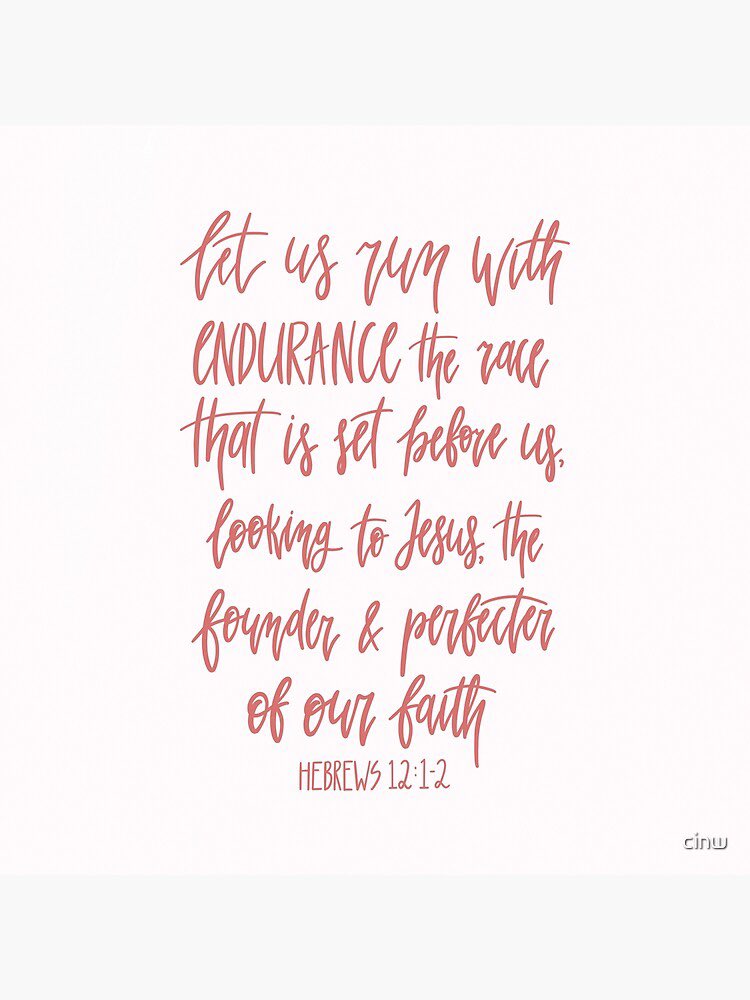 let us run with
ENDURANCE the race
that is set before us,
looking to Jesus, the
founder & perfecter
of our faith
HEBREWS 12:1-2
cinw